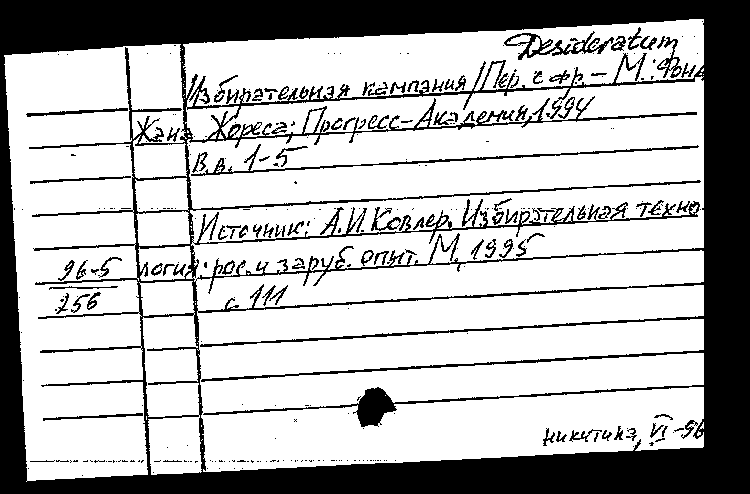 Desideratum
Избирательная кампания / Пер. с фр. – М.: Фонд
Жана Жореса; Прогресс–Академия, 1994
В.в. 1–5
Источник: А.И. Ковлер. Избирательная техно-
96-5 логия: рос. и заруб. опыт. М., 1995
256 с. 111
Никитина, VI –96